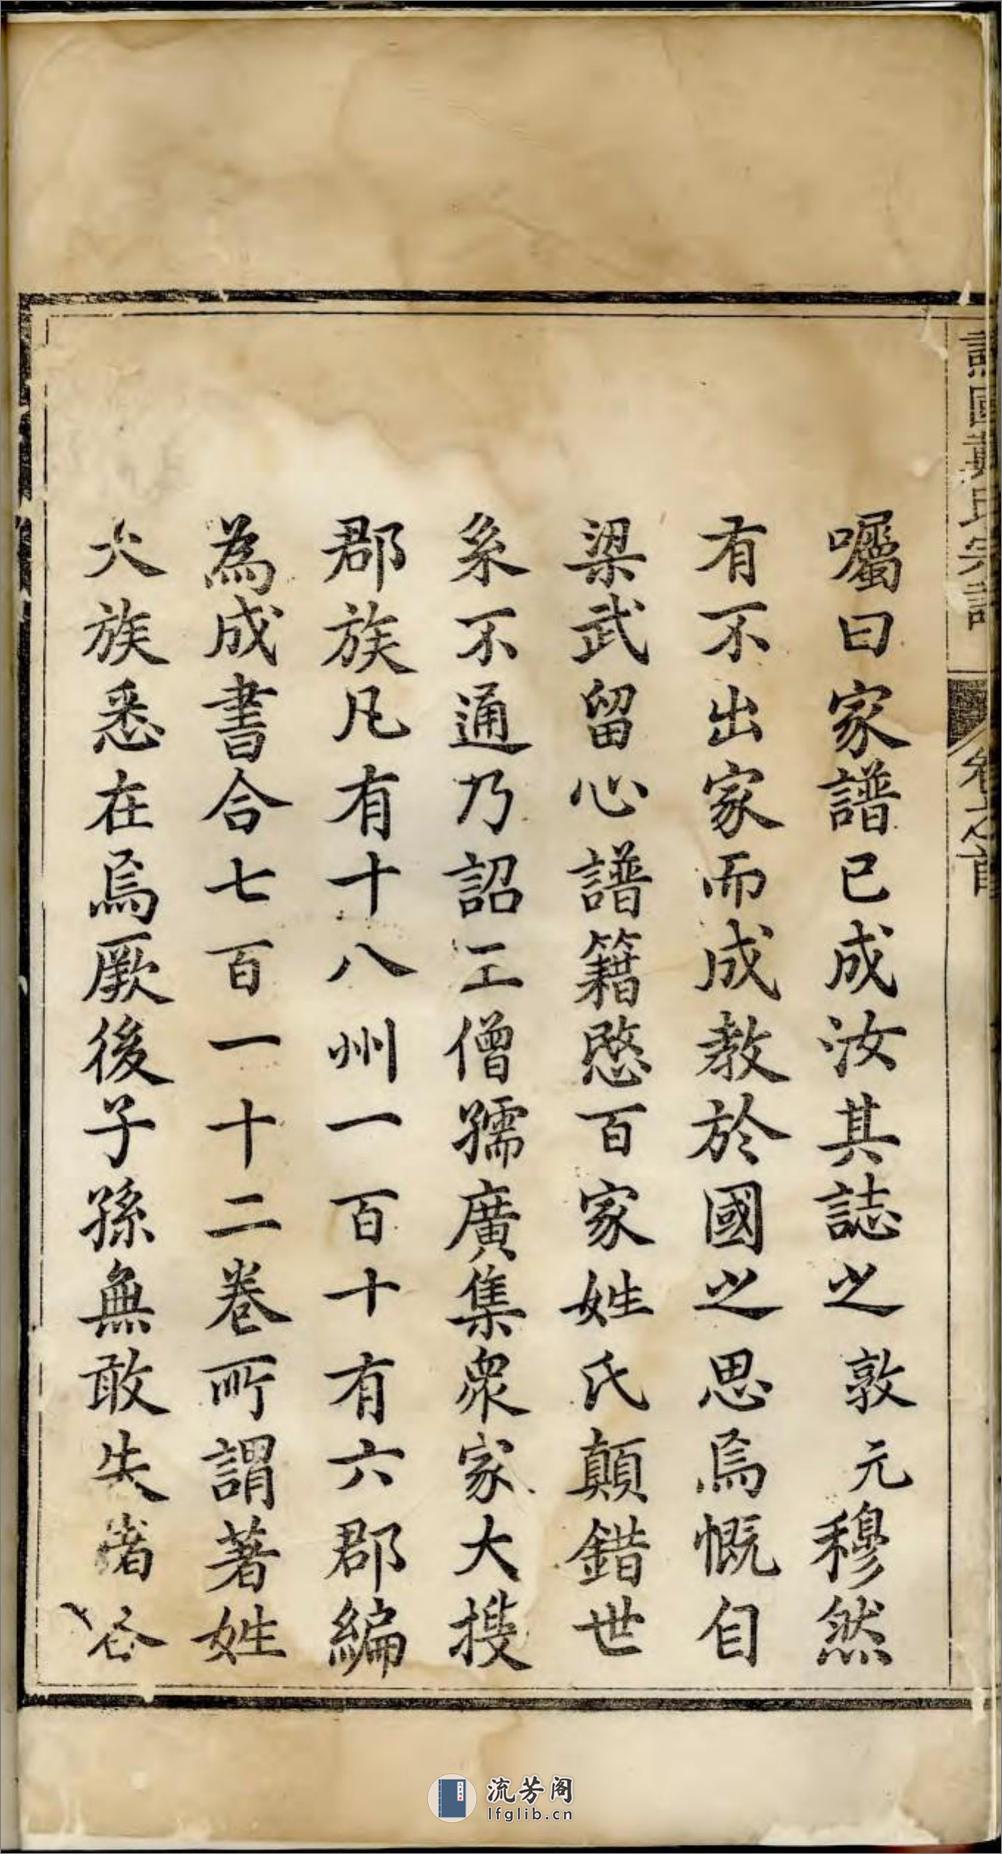 譙國戴氏宗譜 卷之首
囑曰家譜已成汝其誌之敦元穆然
有不出家而成教於國之思焉慨自
梁武留心譜籍愍百家姓氏顛錯世
系不通乃詔王僧孺廣集衆家大搜
郡族凡有十八州一百十有六郡編
為成書合七百一十二卷所謂著姓
大族悉在焉厥後子孫無敢失者
流芳阁
lfglib.cn